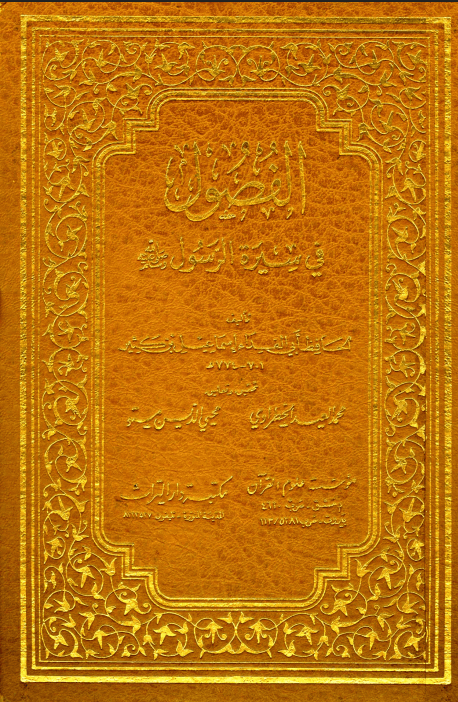 الفُصُول
في سِيرَة الرَسُول ﷺ
تأليف
الحافظ أبي الفداء إسماعيل بن كثير
٧٠١ - ٧٧٤ هـ
تحقيق وتعليق
محمد العيد الخطراوي محيي الدين مستو
مؤسسة علوم القرآن مكتبة دار التراث
دمشق
المدينة المنورة